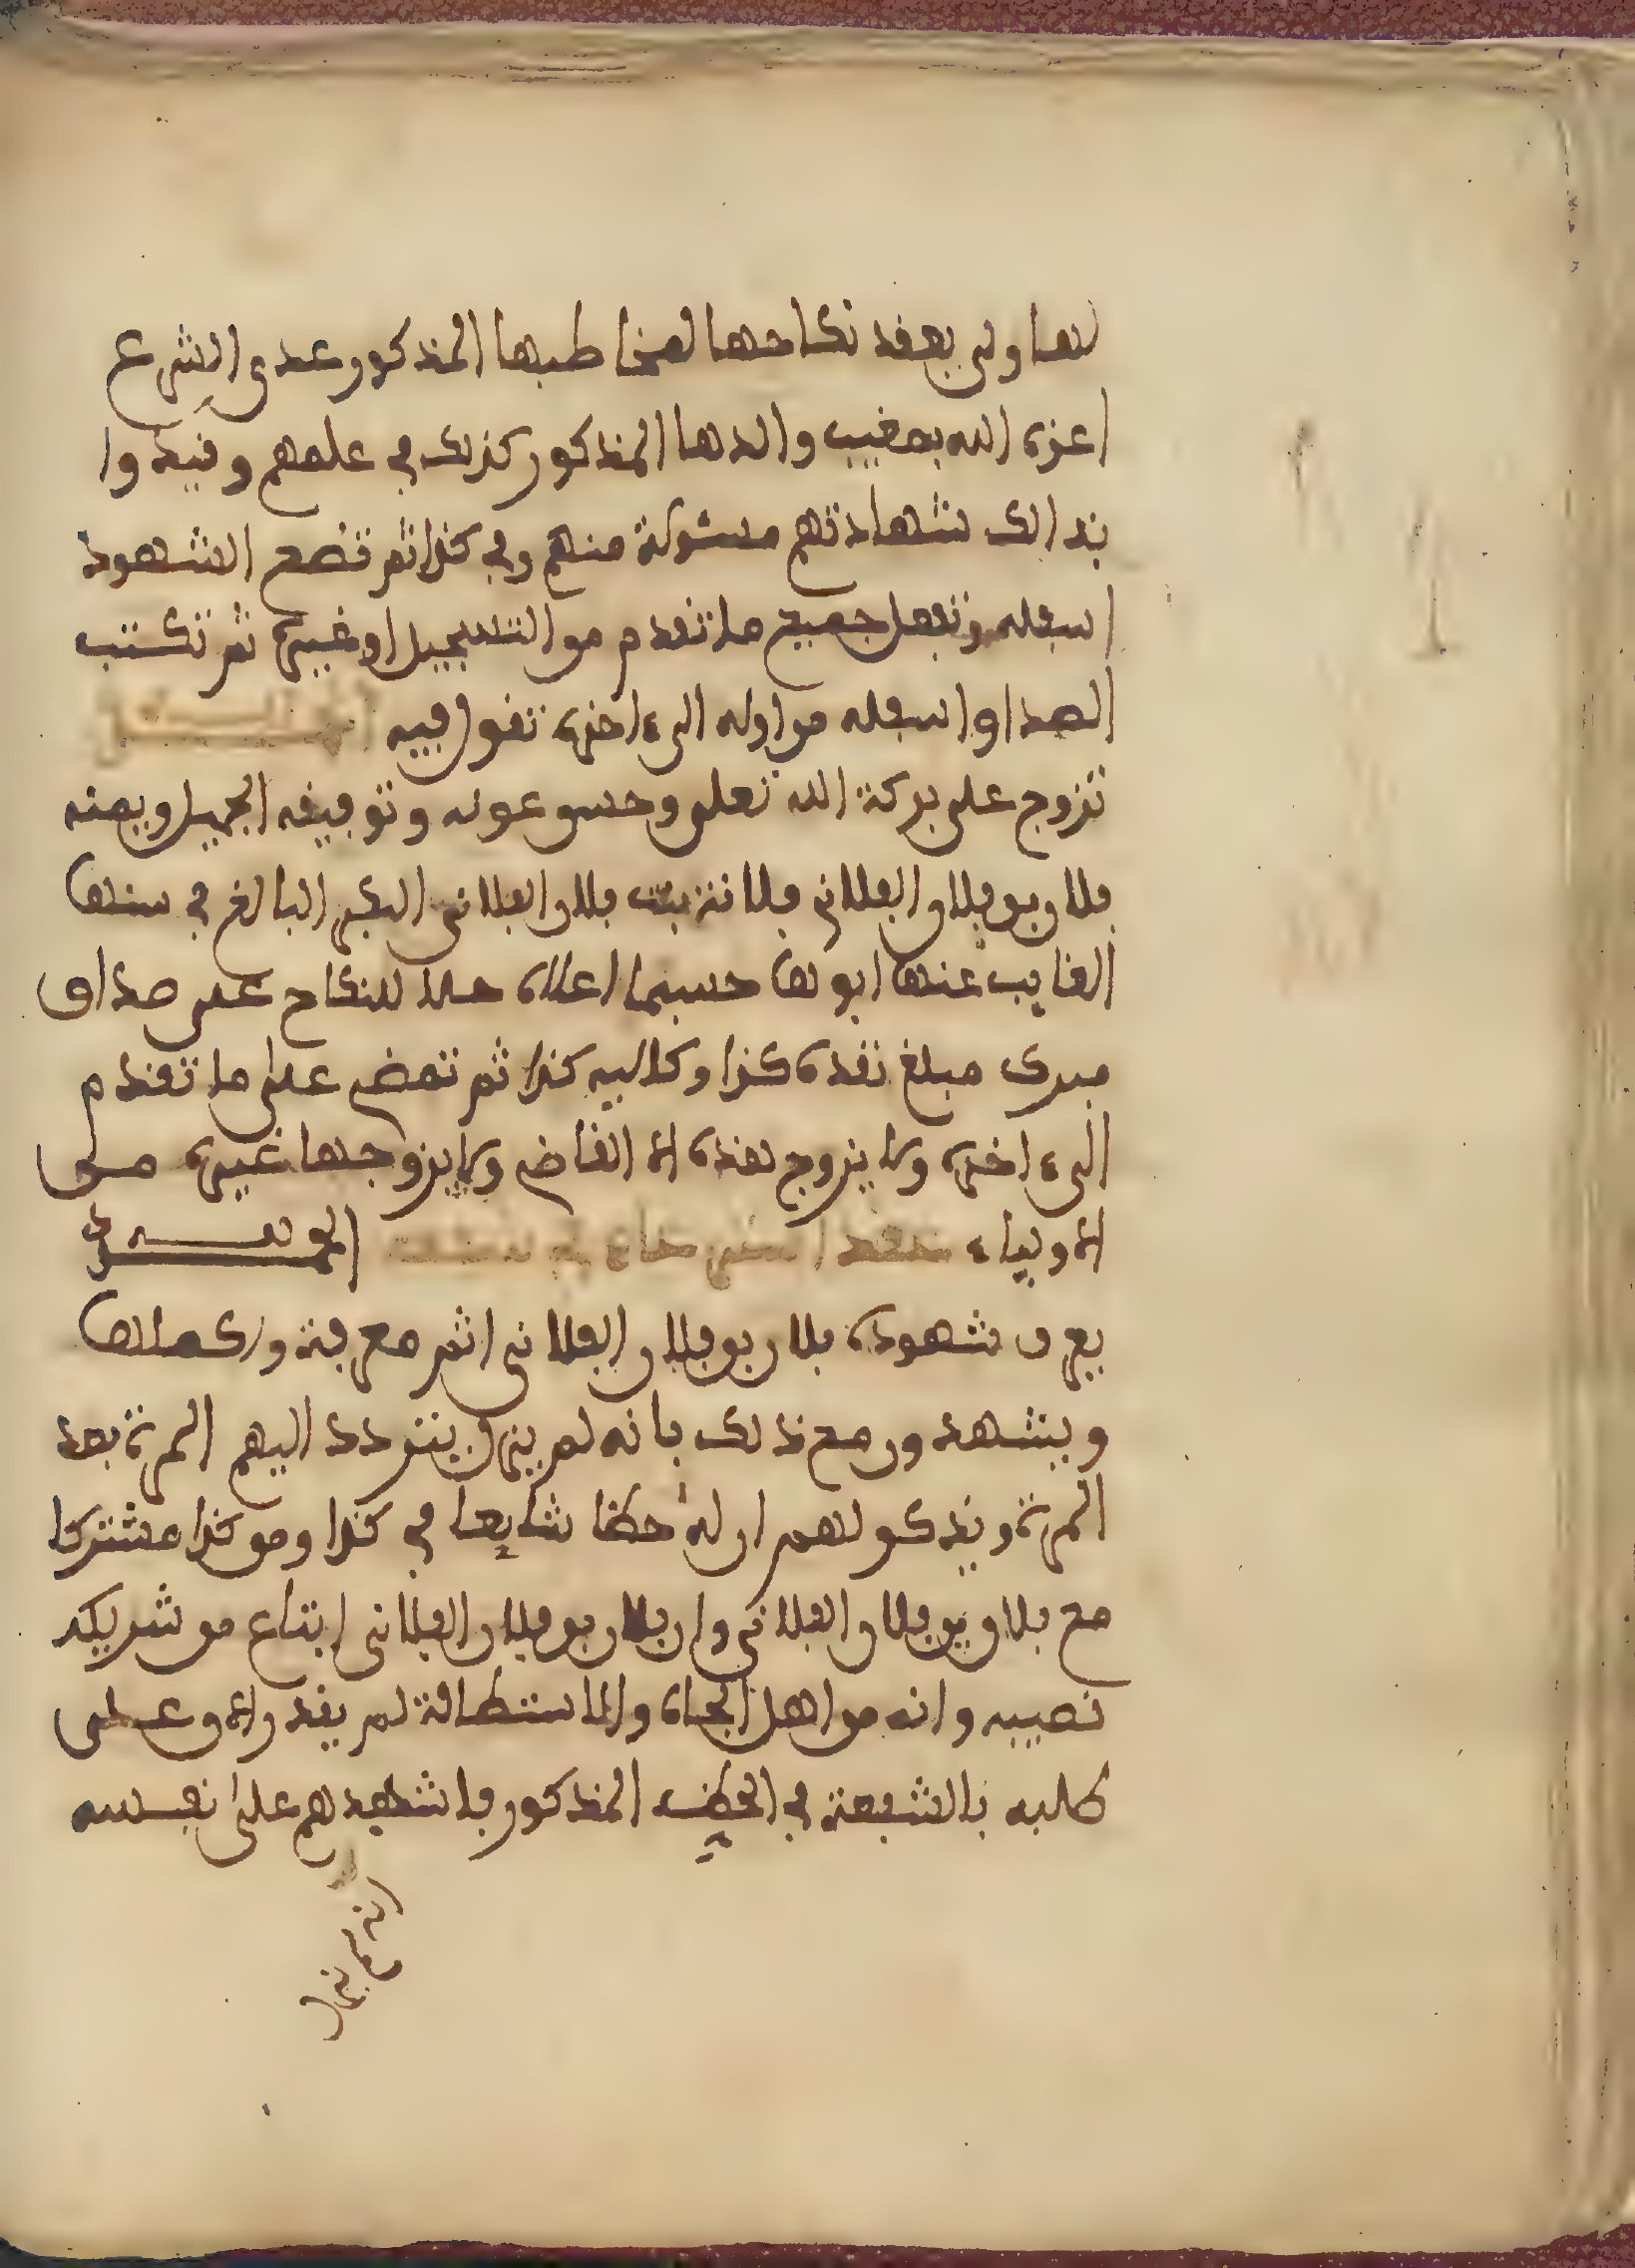 لها ولى يعقد نكاحها لمخاطبها المذكور عدى الشرع
اعزه الله بمغيب والدها المذكور كذلك في علمهم وقيدوا
بذالك شهادتهم مسئولة منهم وفي كذا ثم تضع الشهود
اسفله وتفعل جميع ما تقدم من التسجيل او غيره ثم تكتب
الصداق اسفله من اوله الىء اخره تقول فيه
تزوج على بركة الله تعلى وحسن عونه وتوفيقه الجميل ويمنه
فلان بن فلان الفلاني فلانة بنت فلان الفلاني البكر البالغ في سنها
الغايب عنها ابوها حسبما اعلاه حلا للنكاح على صداق
مبرك مبلغ نقده كذا وكاليه كذا ثم تمضي على ما تقدم
الىء اخره ولا يزوج هذه الا القاضي ولا يزوجها غيره من
الاولياء الحمد لله
يعرف شهوده فلان بن فلان الفلاني اتم معرفة واكملها
ويشهدون مع ذلك بانه لم يزل يتردد اليهم المرة بعد
المرة ويذكر لهم ان له حظا شايعا في كذا ومن كذا مشتركا
مع فلان بن فلان الفلاني وان فلان بن فلان الفلاني ابتاع من شريكه
نصيبه وانه من اهل الجاه والاستطالة لم يقدر على
طلبه بالشفعة في الحظ المذكور فاشهدهم على نفسه
انه لم يزل